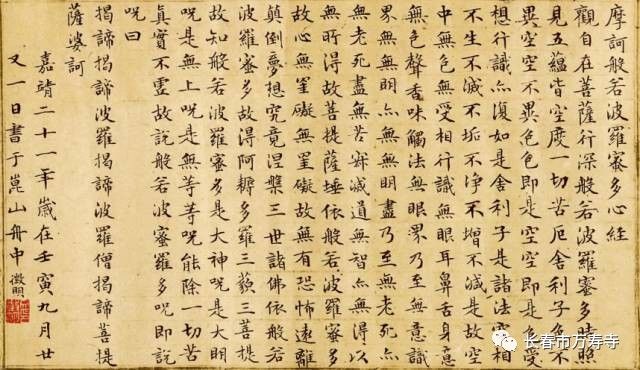 摩訶般若波羅蜜多心經
觀自在菩薩行深般若波羅蜜多時照
見五蘊皆空度一切苦厄舍利子色不
異空空不異色色即是空空即是色受
想行識亦復如是舍利子是諸法空相
不生不滅不垢不淨不增不減是故空
中無色無受相行識無眼耳鼻舌身意
無色聲香味觸法無眼界乃至無意識
界無無明亦無無明盡乃至無老死亦
無老死盡無苦集滅道無智亦無得以
無所得故菩提薩埵依般若波羅蜜多
故心無罣礙無罣礙故無有恐怖遠離
顛倒夢想究竟涅槃三世諸佛依般若
波羅蜜多故得阿耨多羅三藐三菩提
故知般若波羅蜜多是大神咒是大明
咒是無上咒是無等等咒能除一切苦
真實不虛故說般若波蜜羅多咒即說
咒曰
揭諦揭諦波羅揭諦波羅僧揭諦菩提
薩婆訶
嘉靖二十一年歲在壬寅九月廿
又一日書于崑山舟中 徵明
长春市万寿寺